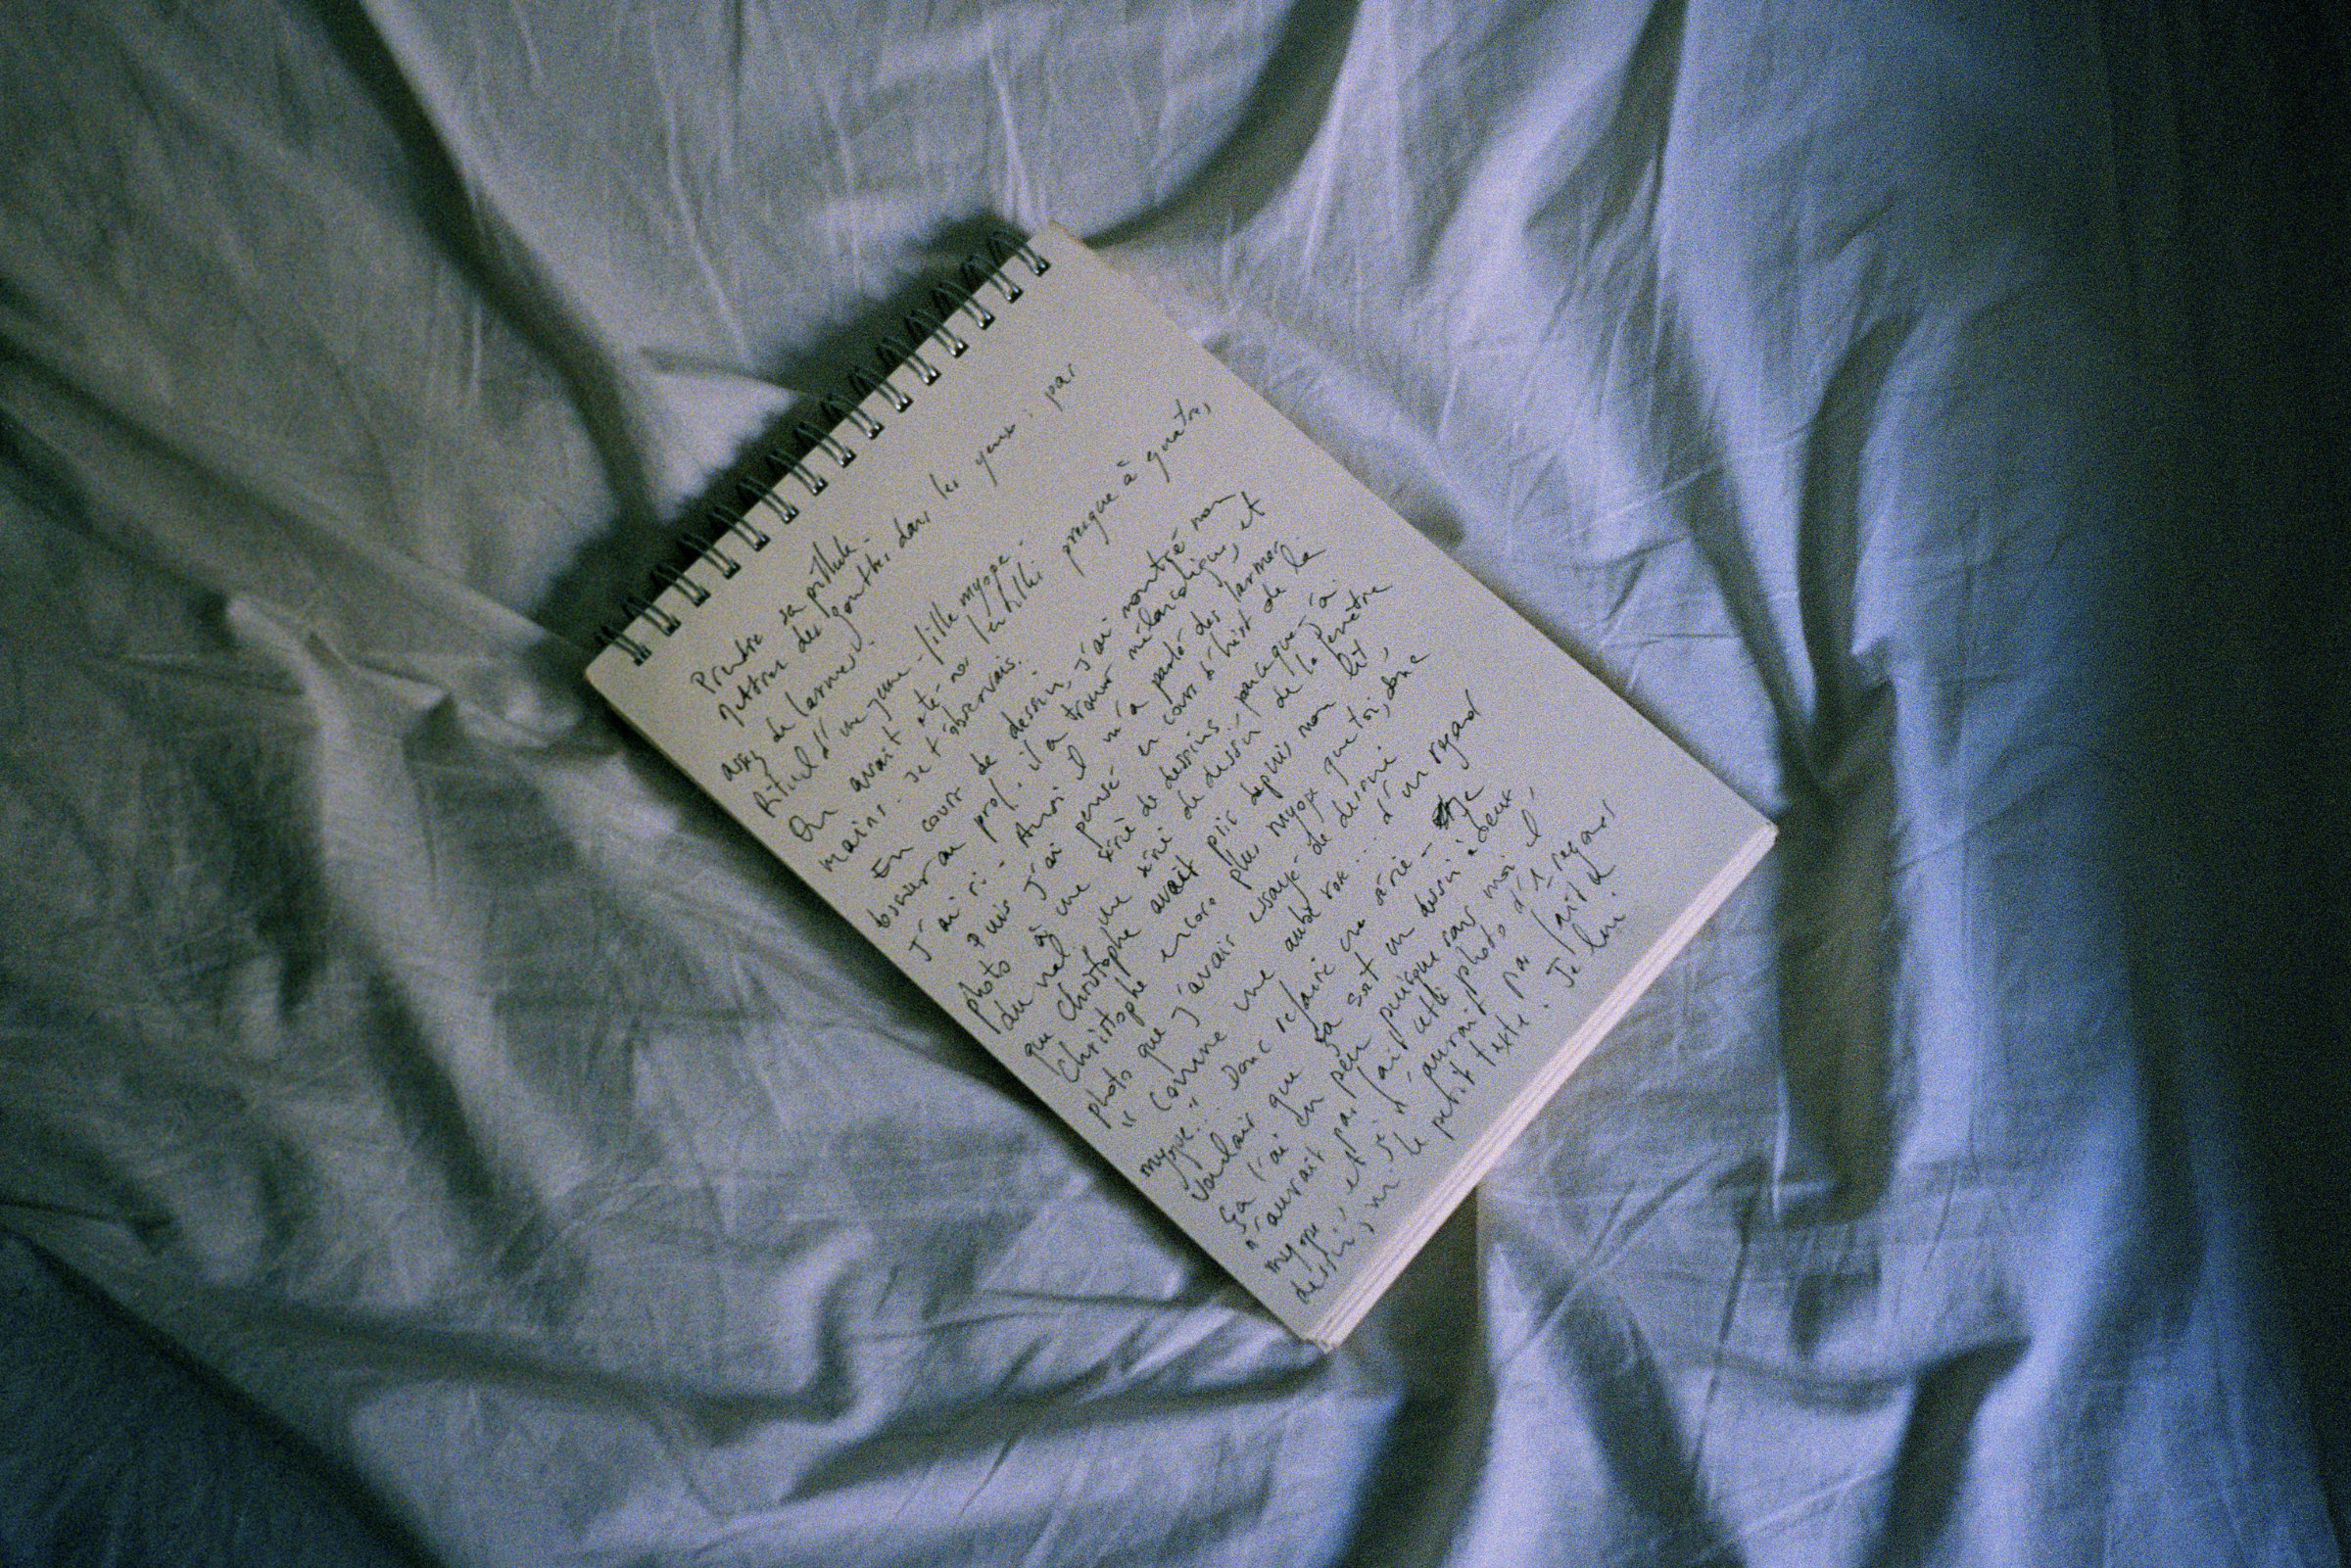 Prendre sa pillule -
Mettre des gouttes dans les yeux : par
assez de larmes !
Rituel d'une jeune-fille myope -
On avait ôté nos lentilles presque à quatre
mains. Je t'observais.
En cours de dessin, j'ai montré mon
au prof. il a trouvé mélancolique, et
J'ai ri - Ainsi il m'a parlé des larmes
Puis j'ai pensé en cours d'hist de la
photo à une série de dessins - parce que j'ai
une série de dessin de la fenêtre
que Christophe avait pris depuis mon lit,
Christophe encore plus myope que toi, donc
photo que j'avais essayé de dessiné
" Comme une aube rose... d'un regard
myope." Donc refaire une série - Je
voulais que ça soit un dessin à deux
ça l'ai un peu puisque sans moi il
n'aurait pas fait cette photo d'1 regard
myope.. et je n'aurait pas fait le
dessin, ni le petit texte. Je lui